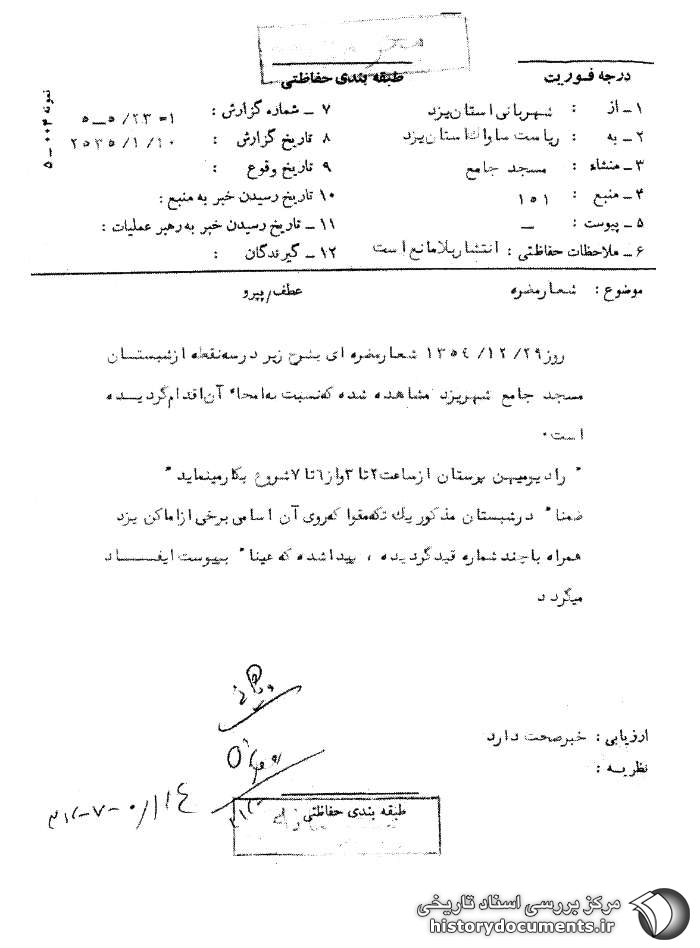 محرمانه
طبقه بندی حفاظتی
درجه فوریت
نمونه ۰۰۴ ــ ۵
۱ ــ از : شهربانی استان یزد
۲ ــ به : ریاست ساواك استان یزد
۳ ــ منشاء : مسجد جامع
۴ ــ منبع : ۱۵۱
۵ ــ پیوست : ــ
۶ ــ ملاحظات حفاظتی : انتشار بلامانع است
۷ ــ شماره گزارش : ۱=۵ــ۵/۲۳
۸ تاریخ گزارش : ۲۵۳۵/۱/۱۰
۹ تاریخ وقوع :
۱۰ تاریخ رسیدن خبر به منبع :
۱۱ ــ تاریخ رسیدن خبر به رهبر عملیات :
۱۲ ــ گیرندگان :
موضوع : شعار مضره
عطف/پیرو
روز ۲۹/ ۱۲/ ۱۳۵۴ شعار مضره ای بشرح زیر در سه نقطه از شبستان
مسجد جامع شهر یزد مشاهده شده که نسبت به امحاء آن اقدام گردیده
است۰
" رادیو میهن پرستان از ساعت ۲ تا ۳ و از ۶ تا ۷ شروع بکار مینماید "
ضمنا" در شبستان مذکور یك تکه مقوا که روی آن اسامی برخی از اماکن یزد
همراه با چند شماره قید گردیده ، پیدا شده که عینا" بپیوست ایفاد
میگردد
ارزیابی : خبر صحت دارد
نظریه :
طبقه بندی حفاظتی
مرکز بررسی اسناد تاریخی
historydocuments.ir